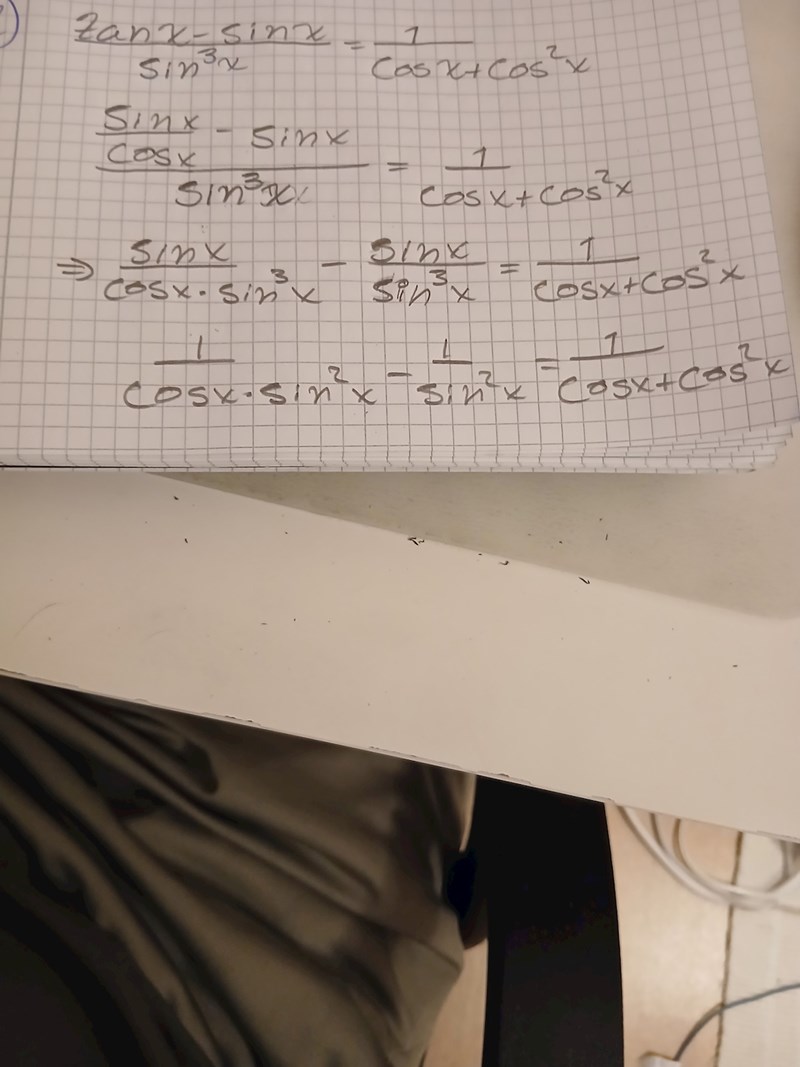 tanx - sinx / sin³x = 1 / cosx + cos²x
sinx / cosx - sinx / sin³x = 1 / cosx + cos²x
⇒ sinx / cosx · sin³x - sinx / sin³x = 1 / cosx + cos²x
1 / cosx · sin²x - 1 / sin²x = 1 / cosx + cos²x